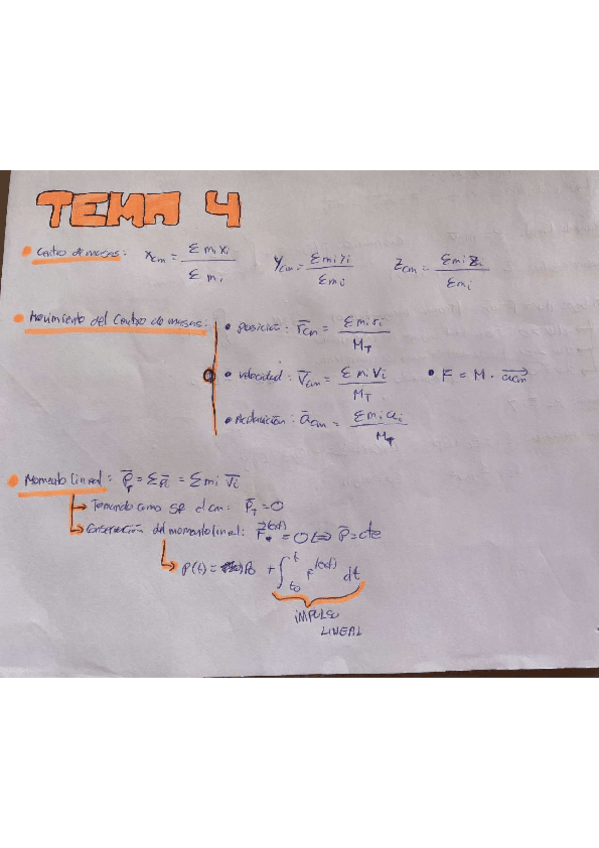 TEMA 4
• Centro de masas: x_cm = Σ mi xi / Σ mi   y_cm = Σ mi yi / Σ mi   z_cm = Σ mi zi / Σ mi
• Movimiento del Centro de masas:
• posición: r̄_cm = Σ mi ri / M_T
• velocidad: v̄_cm = Σ mi vi / M_T   • F = M · a_cm
• Aceleración: ā_cm = Σ mi ai / M_T
• Momento lineal: P̄_T = Σ p̄i = Σ mi v̄i
↳ Tomando como SR el cm: P̄_T = 0
↳ Conservación del momento lineal: F^(ext) = 0 ⇔ P̄ = cte
↳ P(t) = P0 + ∫_{t0}^{t} F^(ext) dt
IMPULSO
LINEAL